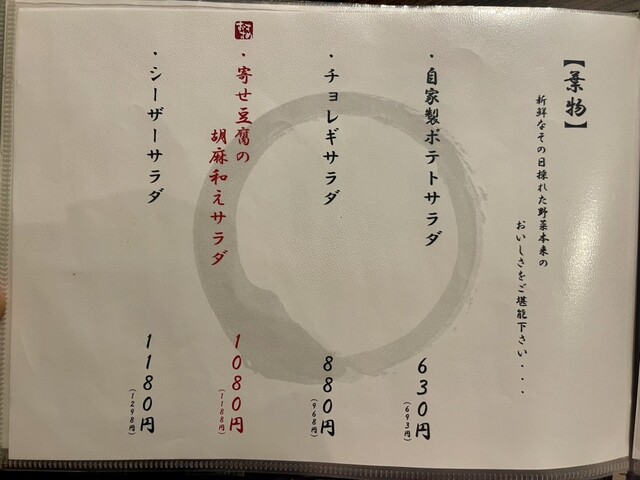 【葉物】
新鮮なその日採れた野菜本来の
おいしさをご堪能下さい・・・
・自家製ポテトサラダ
630円
(693円)
・チョレギサラダ
880円
(968円)
・寄せ豆腐の
胡麻和えサラダ
1080円
(1188円)
・シーザーサラダ
1180円
(1298円)